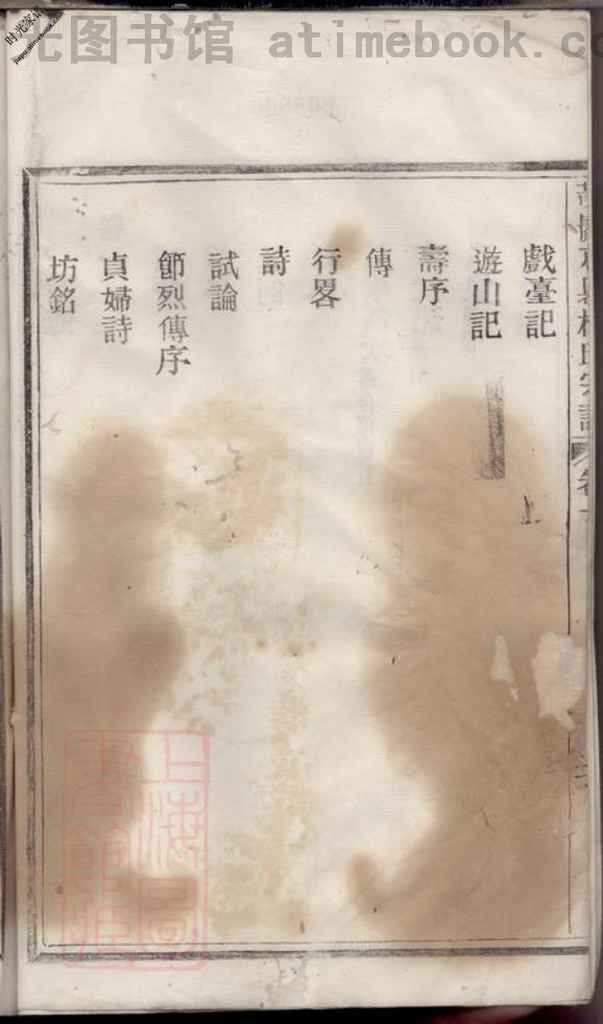 光图书馆 atimebook.co
时光家谱
戲臺記
遊山記
壽序
傳
行畧
詩
試論
節烈傳序
貞婦詩
坊銘